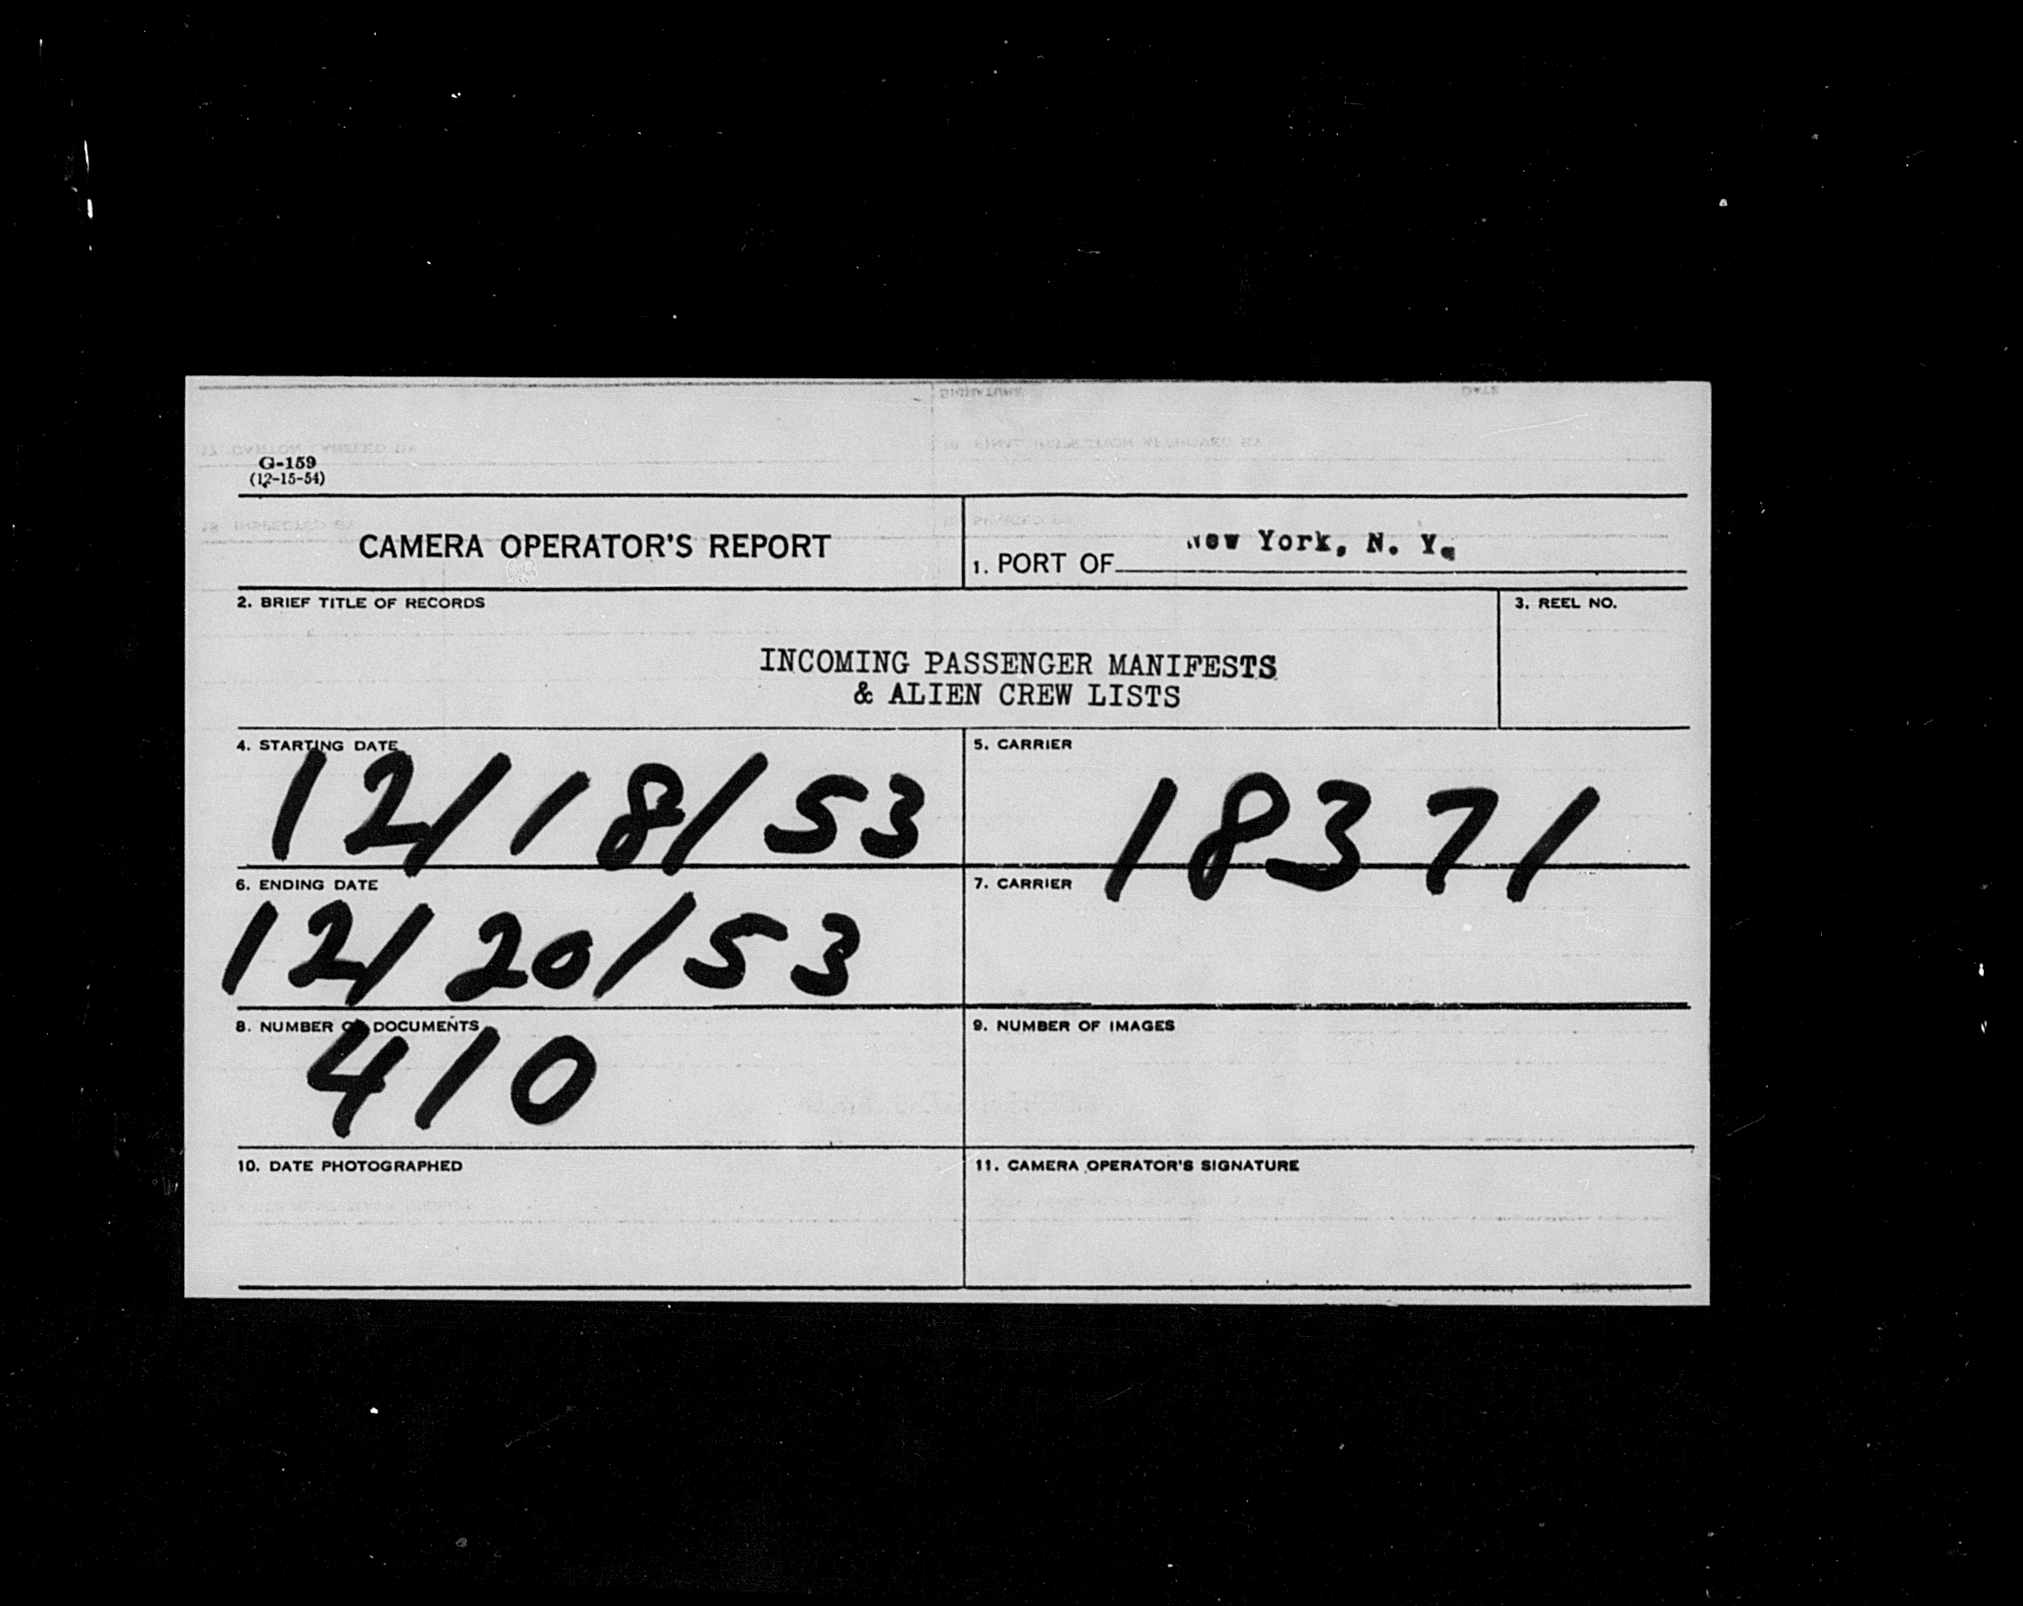 G-159
(12-15-54)
CAMERA OPERATOR'S REPORT
1. PORT OF New York, N. Y.
2. BRIEF TITLE OF RECORDS
3. REEL NO.
INCOMING PASSENGER MANIFESTS
& ALIEN CREW LISTS
4. STARTING DATE
12/18/53
5. CARRIER
18371
6. ENDING DATE
12/20/53
7. CARRIER
8. NUMBER OF DOCUMENTS
410
9. NUMBER OF IMAGES
10. DATE PHOTOGRAPHED
11. CAMERA OPERATOR'S SIGNATURE